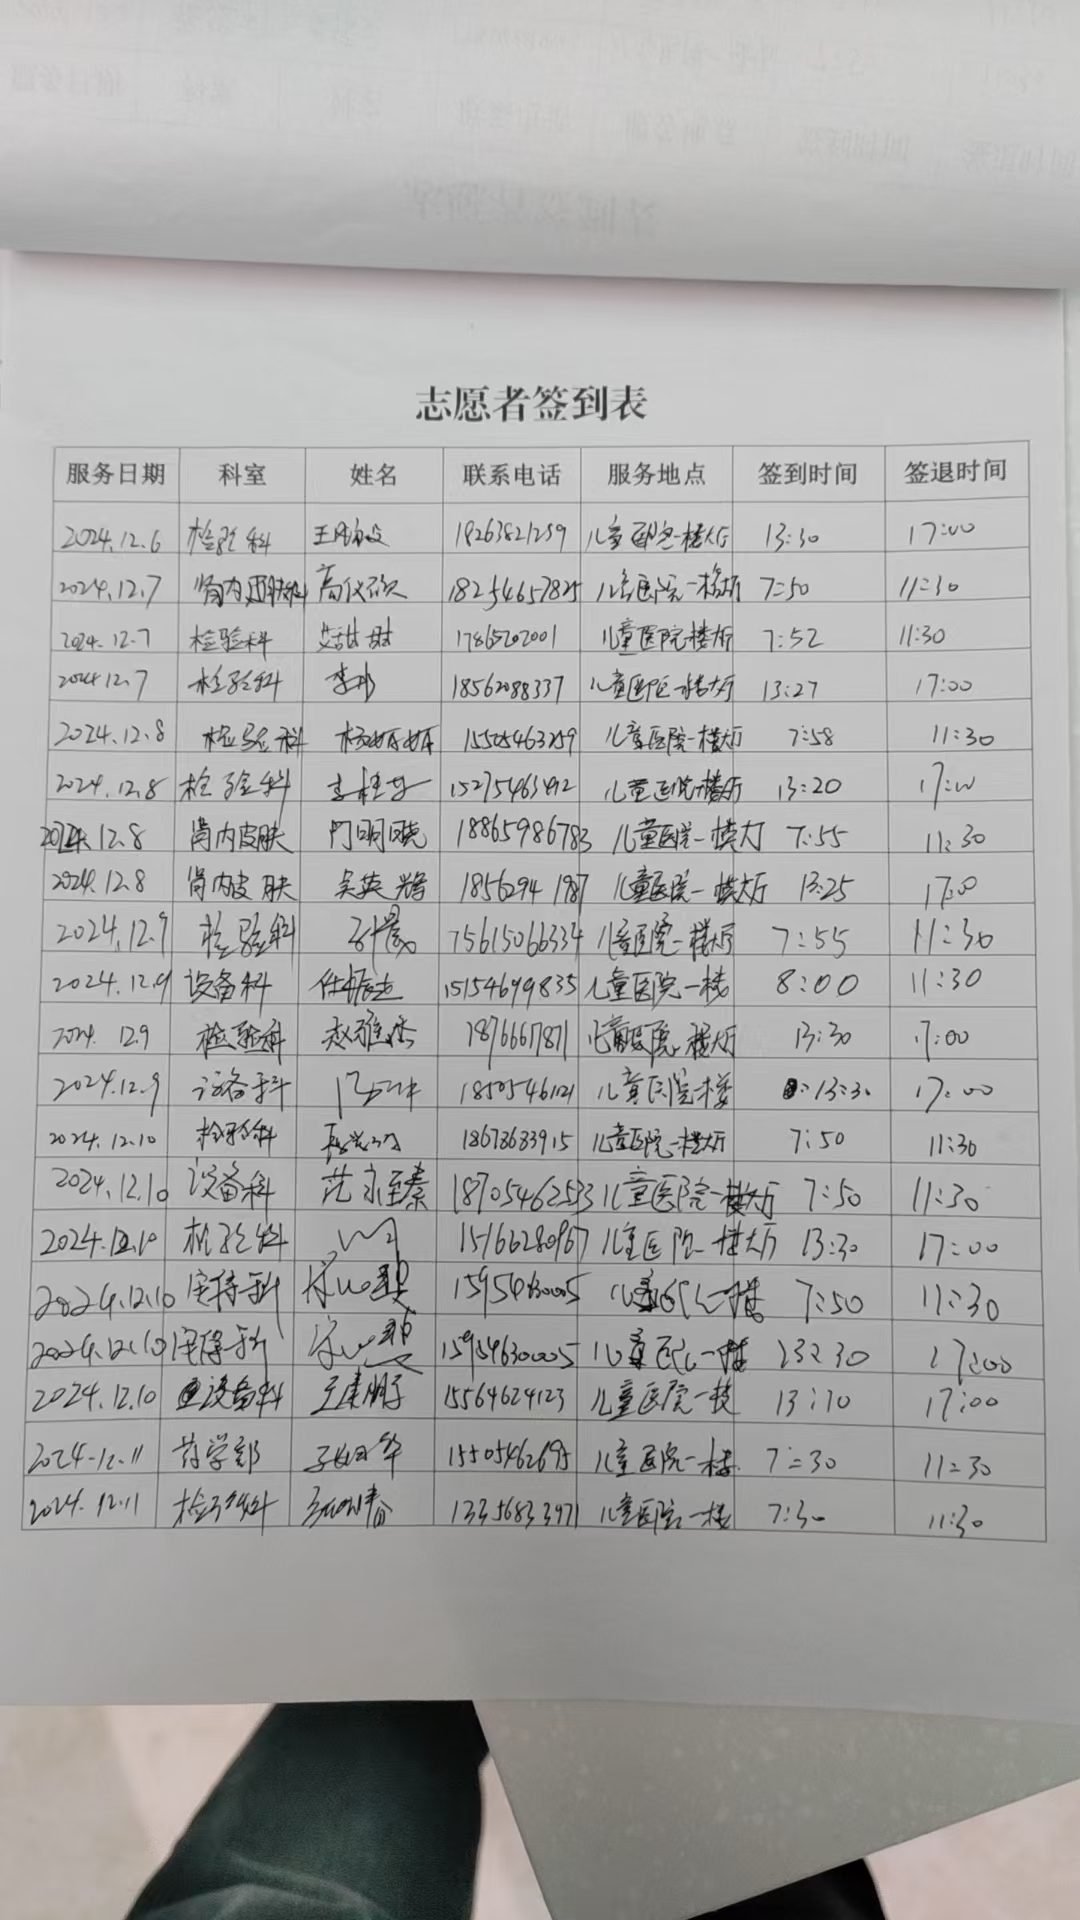 志愿者签到表
服务日期 科室 姓名 联系电话 服务地点 签到时间 签退时间
2024.12.6 检验科 18263821259 儿童医院一楼大厅 13:30 17:00
2024.12.7 肾内皮肤科 高仪欣 18254657825 儿童医院一楼大厅 7:50 11:30
2024.12.7 检验科 17865202001 儿童医院一楼大厅 7:52 11:30
2024.12.7 检验科 18562088337 儿童医院一楼大厅 13:27 17:00
2024.12.8 检验科 杨妍妍 15505463259 儿童医院一楼大厅 7:58 11:30
2024.12.8 检验科 15275463492 儿童医院一楼大厅 13:20 17:00
2024.12.8 肾内皮肤 门明晓 18865986783 儿童医院一楼大厅 7:55 11:30
2024.12.8 肾内皮肤 吴英 18562941987 儿童医院一楼大厅 13:25 17:00
2024.12.9 检验科 75615066334 儿童医院一楼大厅 7:55 11:30
2024.12.9 设备科 任振杰 15154699835 儿童医院一楼 8:00 11:30
2024.12.9 检验科 赵雅 1876667871 儿童医院一楼大厅 13:30 17:00
2024.12.9 设备科 1850546121 儿童医院一楼 13:30 17:00
2024.12.10 检验科 18678683915 儿童医院一楼大厅 7:50 11:30
2024.12.10 设备科 范 18705462533 儿童医院一楼大厅 7:50 11:30
2024.12.10 检验科 15166280967 儿童医院一楼大厅 13:30 17:00
2024.12.10 宋 儿童医院一楼 7:50 11:30
2024.12.10 宋 15954630005 儿童医院一楼 17:00
2024.12.10 设备科 15564624123 儿童医院一楼 13:10 17:00
2024.12.11 药学部 15505462695 儿童医院一楼 7:30 11:30
2024.12.11 检验科 13356833971 儿童医院一楼 7:30 11:30